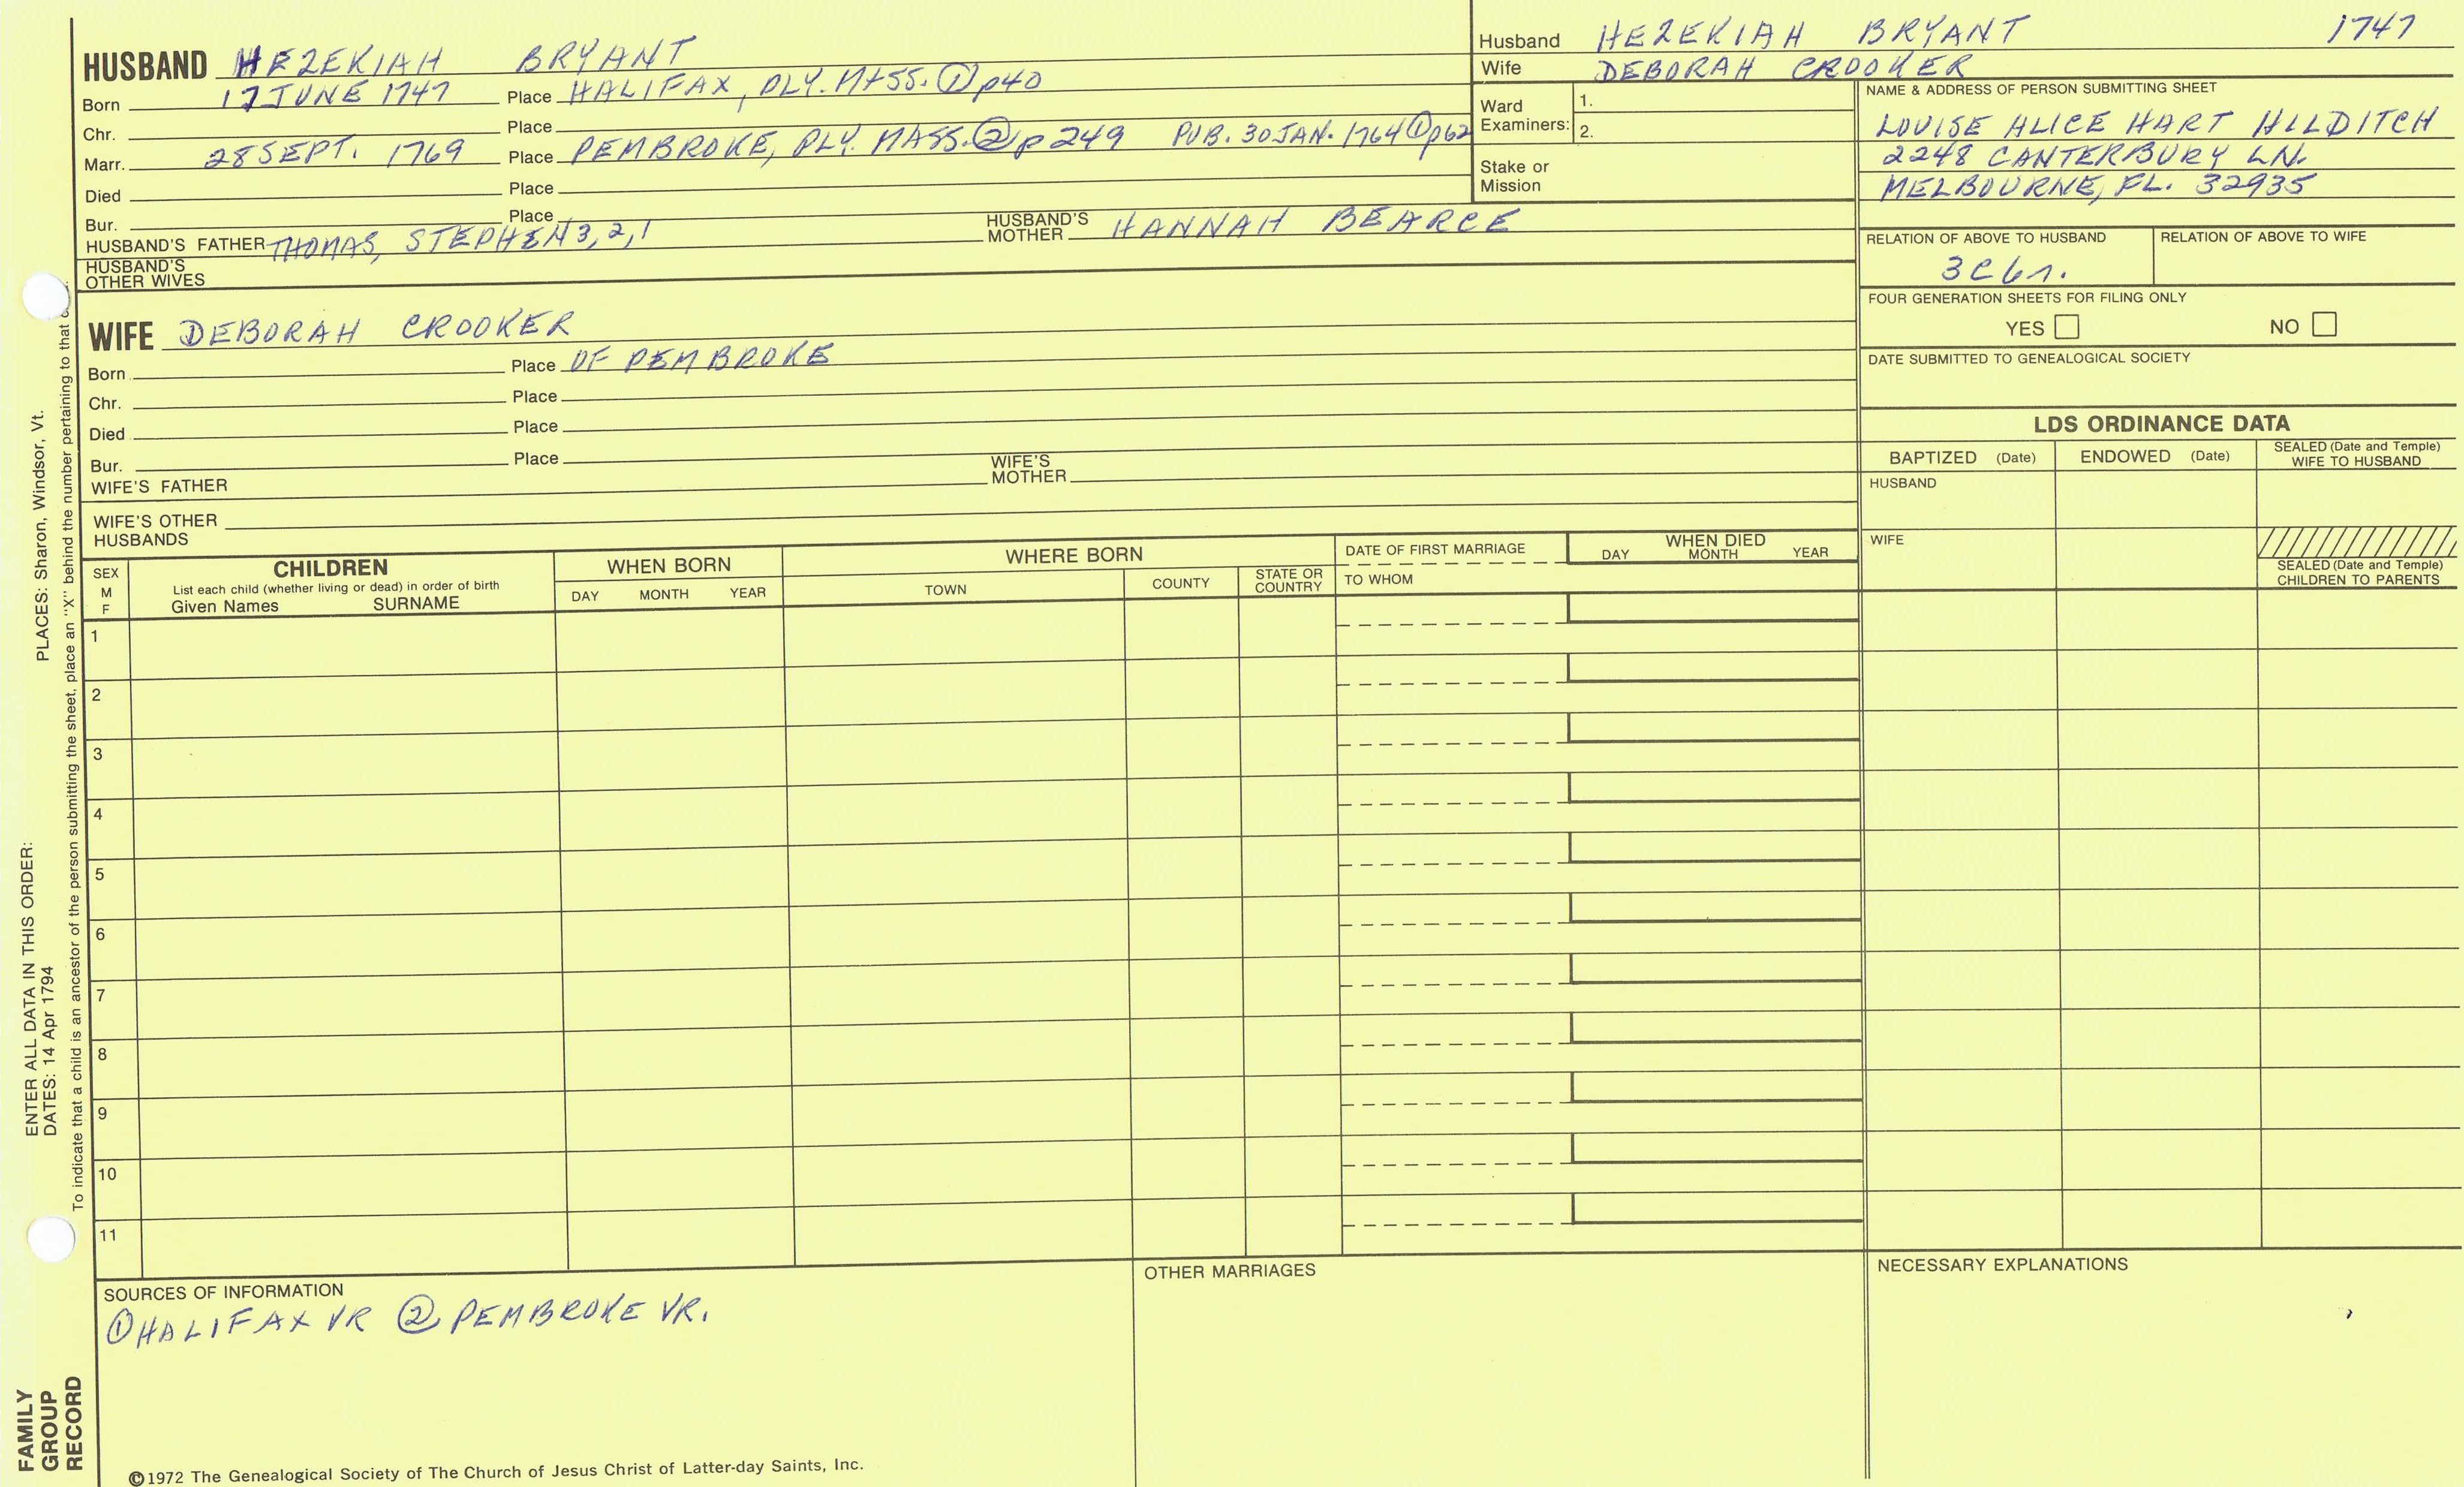 HUSBAND HEZEKIAH BRYANT
Born 17 JUNE 1747 Place HALIFAX, PLY. MASS. ① p40
Chr. Place
Marr. 28 SEPT. 1769 Place PEMBROKE, PLY. MASS. ② p 249 PUB. 30 JAN. 1764 ① p62
Died Place
Bur. Place
HUSBAND'S FATHER THOMAS, STEPHEN 3, 2, 1 HUSBAND'S MOTHER HANNAH BEARCE
HUSBAND'S OTHER WIVES
Husband HEZEKIAH BRYANT 1747
Wife DEBORAH CROOKER
Ward Examiners: 1.
2.
Stake or Mission
NAME & ADDRESS OF PERSON SUBMITTING SHEET
LOUISE ALICE HART HILDITCH
2248 CANTERBURY LN.
MELBOURNE, FL. 32935
RELATION OF ABOVE TO HUSBAND RELATION OF ABOVE TO WIFE
3C6r.
FOUR GENERATION SHEETS FOR FILING ONLY
YES NO
DATE SUBMITTED TO GENEALOGICAL SOCIETY
WIFE DEBORAH CROOKER
Born Place OF PEMBROKE
Chr. Place
Died Place
Bur. Place
WIFE'S FATHER WIFE'S MOTHER
WIFE'S OTHER HUSBANDS
LDS ORDINANCE DATA
BAPTIZED (Date) ENDOWED (Date) SEALED (Date and Temple) WIFE TO HUSBAND
HUSBAND
WIFE
SEALED (Date and Temple) CHILDREN TO PARENTS
SEX M F
CHILDREN
List each child (whether living or dead) in order of birth
Given Names SURNAME
WHEN BORN
DAY MONTH YEAR
WHERE BORN
TOWN COUNTY STATE OR COUNTRY
DATE OF FIRST MARRIAGE
TO WHOM
WHEN DIED
DAY MONTH YEAR
1
2
3
4
5
6
7
8
9
10
11
SOURCES OF INFORMATION
① HALIFAX VR ② PEMBROKE VR.
OTHER MARRIAGES
NECESSARY EXPLANATIONS
©1972 The Genealogical Society of The Church of Jesus Christ of Latter-day Saints, Inc.
FAMILY GROUP RECORD
ENTER ALL DATA IN THIS ORDER:
DATES: 14 Apr 1794 PLACES: Sharon, Windsor, Vt.
To indicate that a child is an ancestor of the person submitting the sheet, place an "X" behind the number pertaining to that